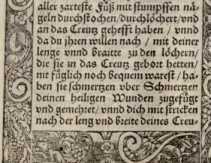 aller zarteste Füß mit stumpffen nå-
geln durchstochen/durchlöchert/vnd
an das Creutz gehefft haben / vnnd
Da du jhren willen nach / mit deiner
lenge vnnd braitte zu den löchern,
die sie in das Creutz gebort hetten/
nit füglich noch bequem warest / ha-
ben sie schmertzen vber Schmertzen
deinen heiligen Wunden zugefügt
vnd gemehret / vnnd dich mit stricken
nach der leng vnd breite deines Creu-